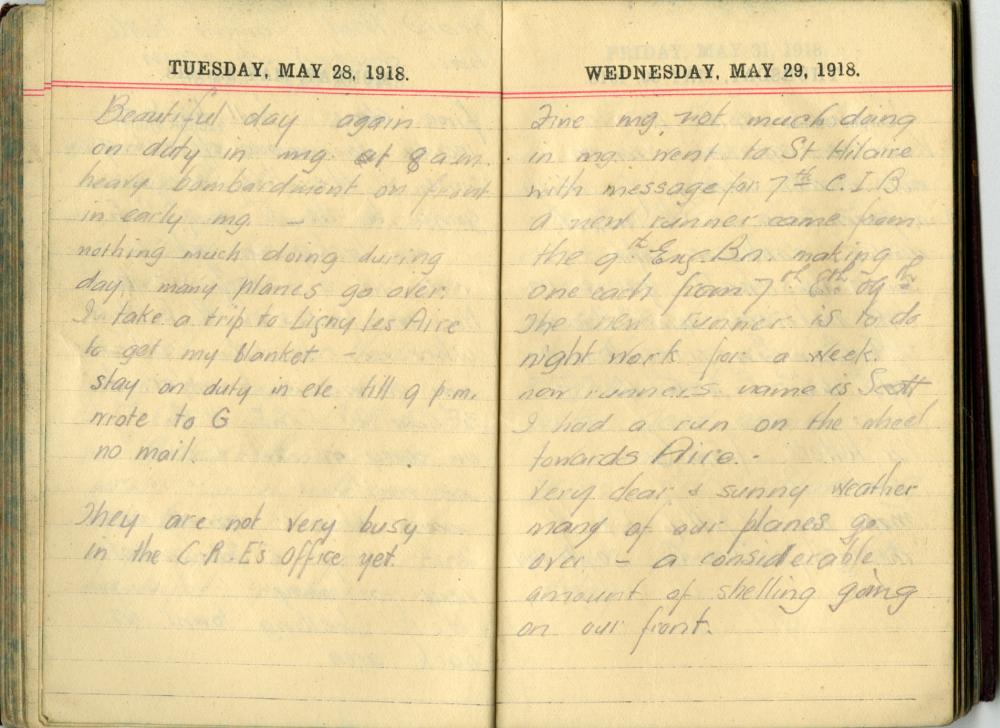 TUESDAY, MAY 28, 1918.
Beautiful day again
on duty in mg. at 8 a.m.
heavy bombardment on front
in early mg. —
nothing much doing during
day, many planes go over.
I take a trip to Ligny les Aire
to get my blanket —
stay on duty in eve till 9 p.m.
wrote to G
no mail.
They are not very busy
in the C.R.E's office yet.
WEDNESDAY, MAY 29, 1918.
Fine mg. not much doing
in mg. went to St Hilaire
with message for 7th C.I.B
a new runner came from
the 9th Eng. Bn making
one each from 7th 8th & 9th
The new runner is to do
night work for a week.
new runners name is Scott
I had a run on the wheel
towards Aire. -
Very clear & sunny weather
many of our planes go
over — a considerable
amount of shelling going
on our front.